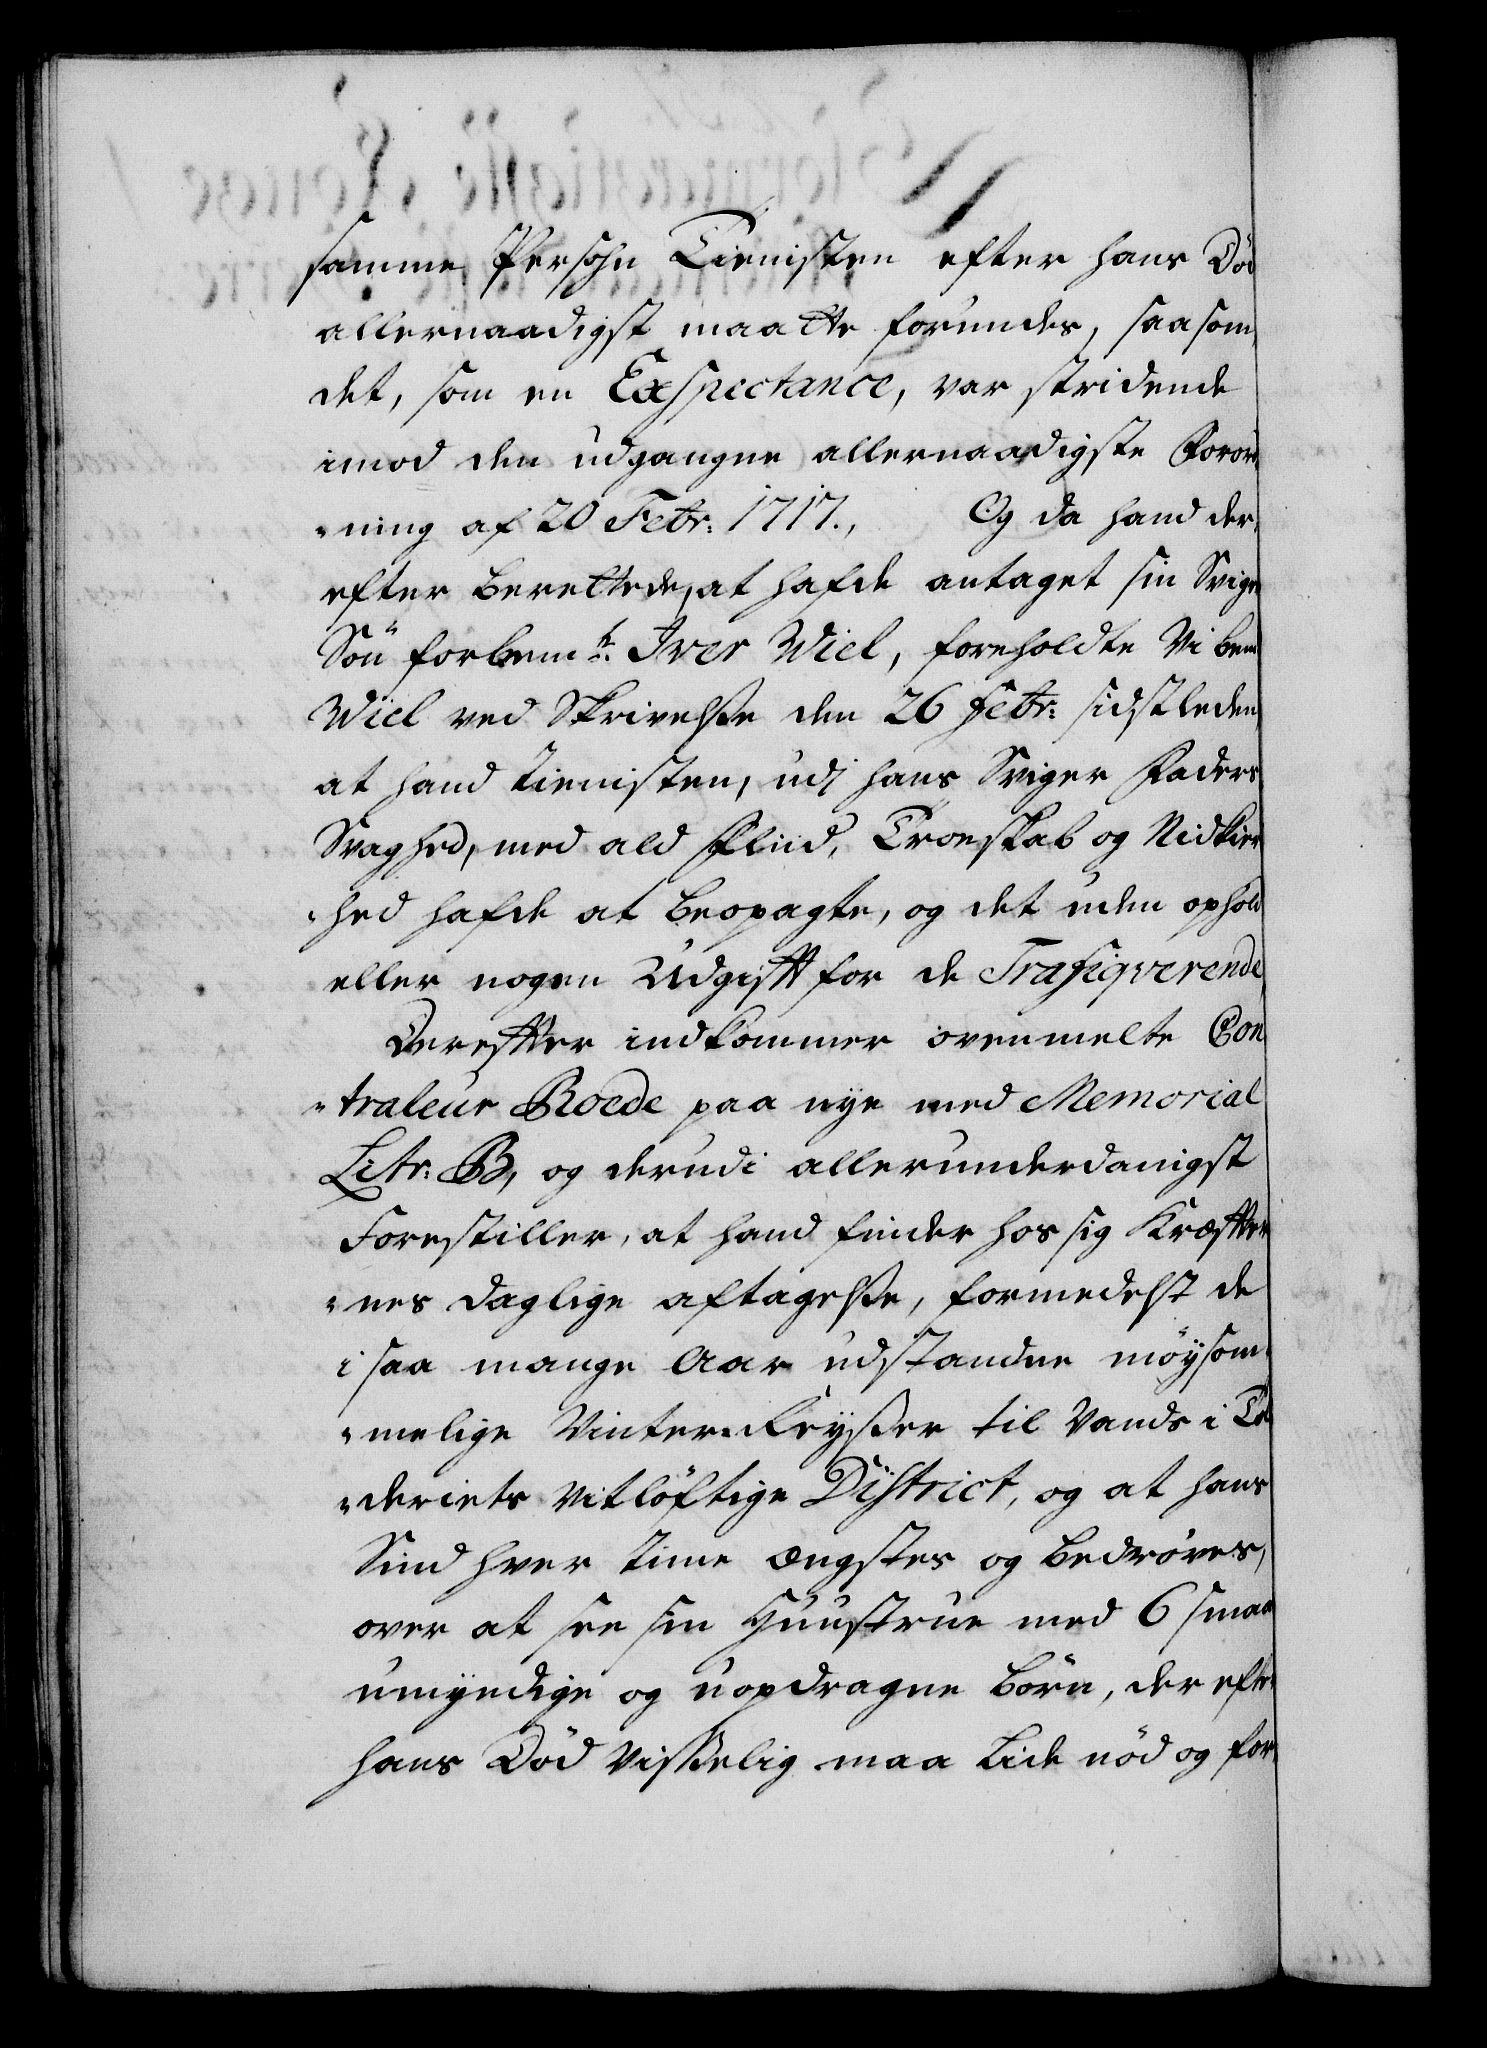 samme Persohn Tienisten efter hans Död
allernaadigst maatte forundes, saasom
det, som en Exspectance, var stridende
imod den udgangne allernaadigste Forord
-ning af 20 Febr: 1717., Og da hand der-
efter berettede, at hafde antaget sin Sviger
Sön forbemte. Iver Wiel, foreholdte Vi bem
Wiel ved Skrivelsse den 26 Febr: sidstleden
at hand Tienisten, udj hans Sviger Faders
Svaghed, med ald Fliid, Troeskab og Nidkier
-hed hafde at beopagte, og det uden ophold
eller nogen Udgifft for de Trafiqverende
Dereffter indkommer ovenmelte Con
-traleur Roede paa nye med Memorial
Litr: B, og derudi allerunderdanigst
Forestiller, at hand finder hos sig Kræffter
-nes daglige aftagelsse, formedelst de
i saa mange Aar udstandne möysom-
-melige Vinter-Reysser til Vands i
-deriets vitlöftige District, og at hans
Sind hver time ængstes og bedröves,
over at see sin Huustrue med 6 smaa
umyndige og uopdragne börn, der efter
hans Död visselig maa lide nöd og for-